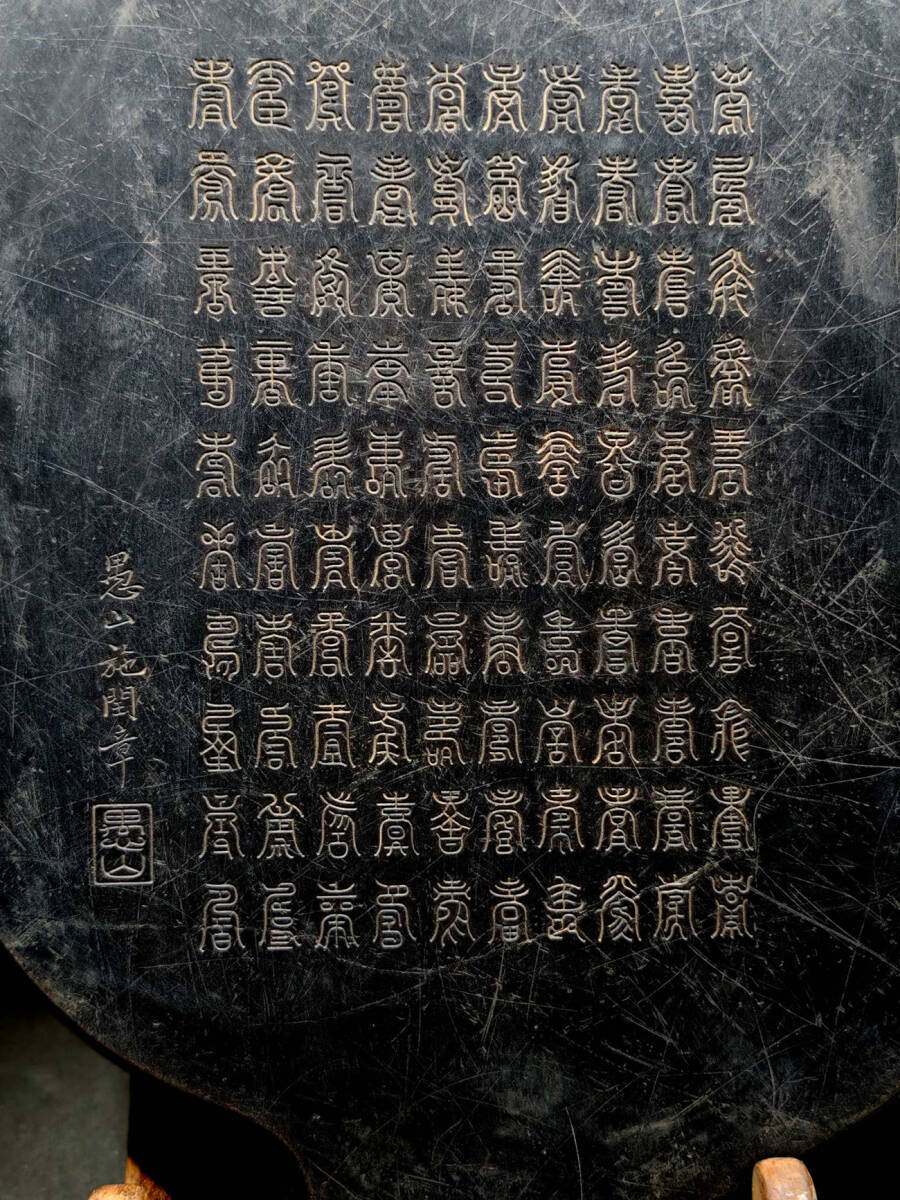 壽壽壽壽壽壽壽壽壽壽
壽壽壽壽壽壽壽壽壽壽
壽壽壽壽壽壽壽壽壽壽
壽壽壽壽壽壽壽壽壽壽
壽壽壽壽壽壽壽壽壽壽
壽壽壽壽壽壽壽壽壽壽
壽壽壽壽壽壽壽壽壽壽
壽壽壽壽壽壽壽壽壽壽
壽壽壽壽壽壽壽壽壽壽
壽壽壽壽壽壽壽壽壽壽
愚山施閏章
愚山